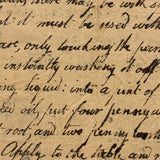 there may be with s
it must be used with
are, only touching the par
instantly washing it off
ing liquid: into a pint of
ed oil, put four pennywo
root, and two pennywo
Apply to the stable and